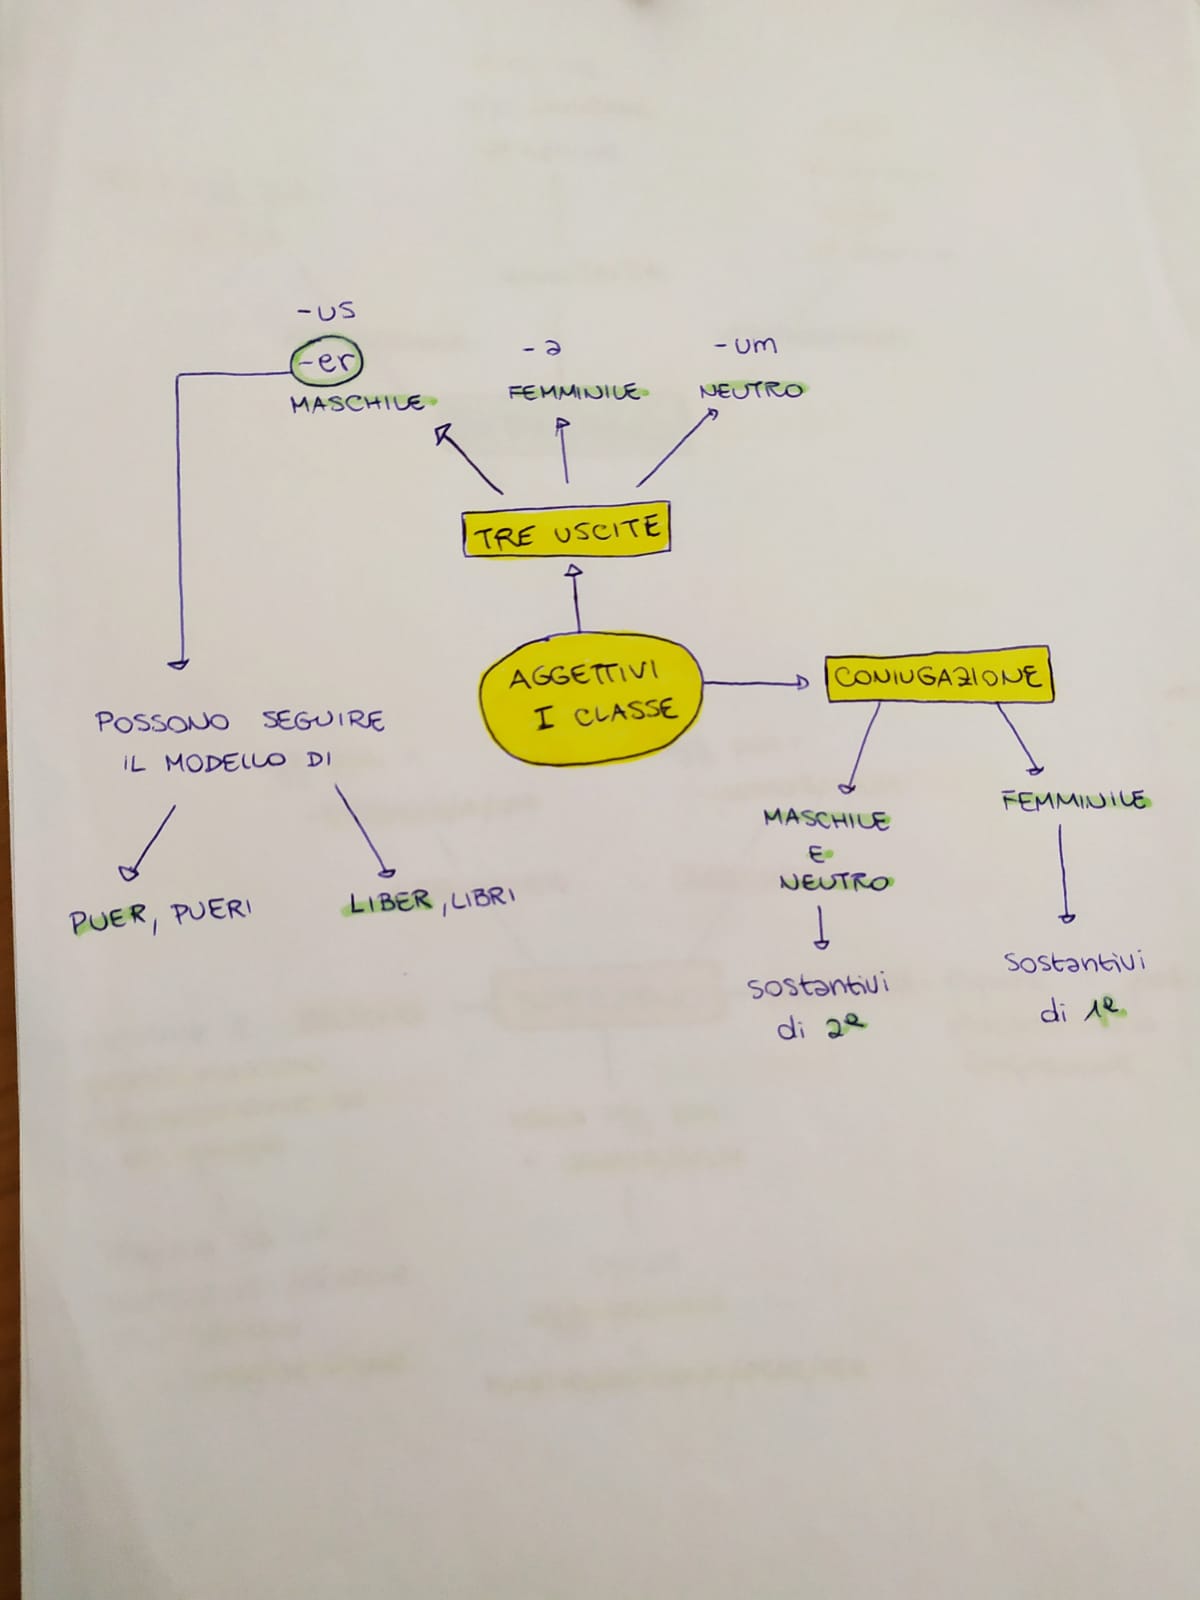 -us
-er
MASCHILE
-a
FEMMINILE
-um
NEUTRO
TRE USCITE
AGGETTIVI
I CLASSE
CONIUGAZIONE
POSSONO SEGUIRE
IL MODELLO DI
PUER, PUERI
LIBER, LIBRI
MASCHILE
E
NEUTRO
sostantivi
di 2ª
FEMMINILE
sostantivi
di 1ª